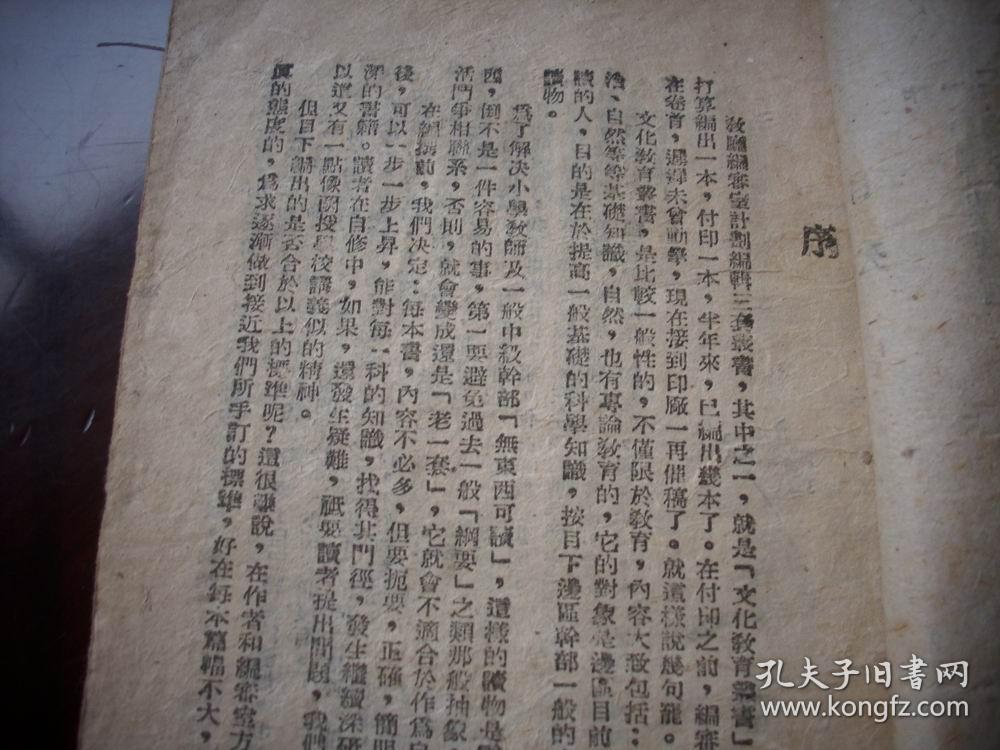 序
教廳編審室計劃編輯三套叢書，其中之一，就是「文化教育叢書」
打算編出一本，付印一本，半年來，已編出幾本了。在付印之前，編審
在卷首，遲遲未曾動筆，現在接到印廠一再催稿了。就這樣說幾句罷。
文化教育叢書，是比較一般性的，不僅限於教育，內容大致包括：
治、自然等等基礎知識，自然，也有專論教育的，它的對象是邊區目前
讀的人，目的是在於提高一般基礎的科學知識，按目下邊區幹部一般的
讀物。
爲了解决小學教師及一般中級幹部「無東西可讀」，這樣的讀物是
西，倒不是一件容易的事，第一要避免過去一般「綱要」之類那般抽象
活鬥爭相聯系，否則，就會變成還是「老一套」，它就會不適合於作爲
在編撰前，我們决定：每本書，內容不必多，但要扼要，正確，簡明
後，可以一步一步上昇，能對每一科的知識，找得其門徑，發生繼續深研
深的書籍。讀者在自修中，如果，還發生疑難，祇要讀者提出問題，我們
以這又有一點像函授學校講義似的精神。
但目下編出的是否合於以上的標準呢？這很難說，在作者和編審室方
真的態度的，爲求逐漸做到接近我們所手訂的標準，好在每本篇幅不大，
孔夫子旧書网
www.kongfz.com